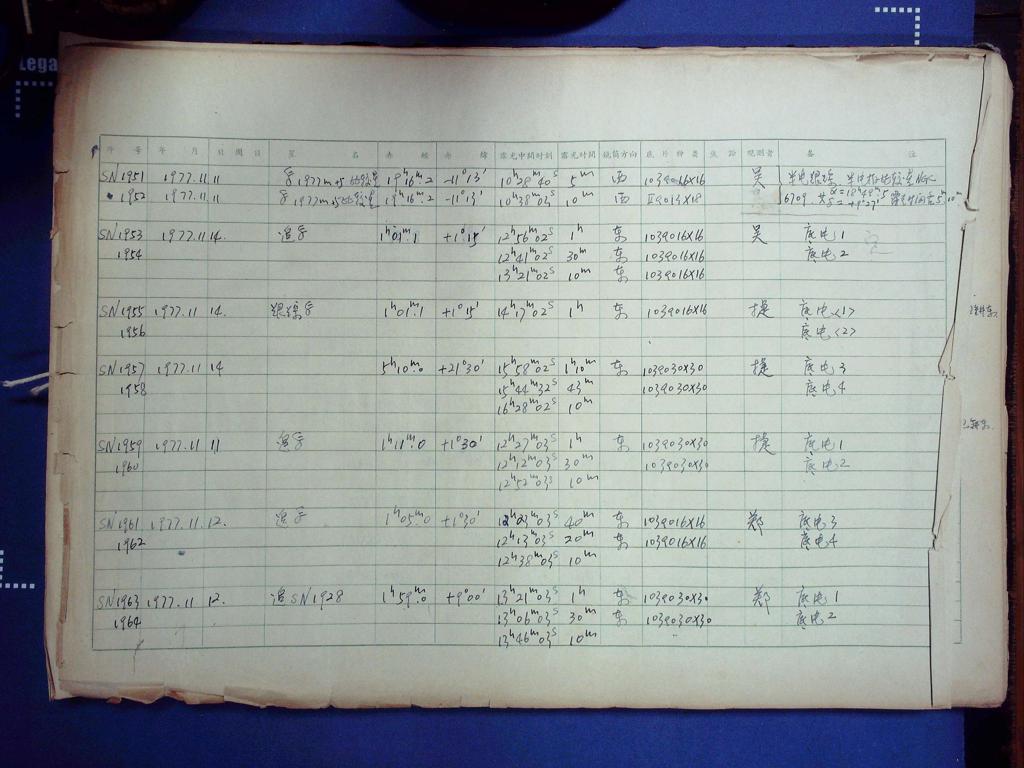 Lega
序 号 年 月 日期日 星 名 赤 经 赤 纬 露光中间时刻 露光时间 镜筒方向 底片种类 焦距 观测者 备 注
SN1951 1977.11.11 1977m=5比较星 19ʰ16ᵐ.2 -11°13′ 10ʰ28ᵐ40ˢ 5ᵐ 西 103aO16X16 吴
1952 1977.11.11 1977m=5比较星 19ʰ16ᵐ.2 -11°13′ 10ʰ38ᵐ03ˢ 10ᵐ 西 13X18 6709
SN1953 1977.11 14. 1ʰ01ᵐ.1 +1°15′ 12ʰ56ᵐ02ˢ 1ʰ 东 103aO16X16 吴 底电1
1954 12ʰ41ᵐ02ˢ 30ᵐ 东 103aO16X16 底电2
13ʰ21ᵐ02ˢ 10ᵐ 东 103aO16X16
SN1955 1977.11 14. 1ʰ01ᵐ.1 +1°15′ 14ʰ17ᵐ02ˢ 1ʰ 东 103aO16X16 捷 底电<1>
1956 底电<2>
SN1957 1977.11 14 5ʰ10ᵐ.0 +21°30′ 15ʰ58ᵐ02ˢ 1ʰ10ᵐ 东 103aO30X30 捷 底电3
1958 15ʰ44ᵐ32ˢ 43ᵐ 103aO30X30 底电4
16ʰ28ᵐ02ˢ 10ᵐ
SN1959 1977.11 11 1ʰ11ᵐ.0 +1°30′ 12ʰ27ᵐ03ˢ 1ʰ 东 103aO30X30 捷 底电1
1960 12ʰ12ᵐ03ˢ 30ᵐ 103aO30X30 底电2
12ʰ52ᵐ03ˢ 10ᵐ
SN1961 1977.11 12. 1ʰ05ᵐ.0 +1°30′ 12ʰ23ᵐ03ˢ 40ᵐ 东 103aO16X16 郑 底电3
1962 12ʰ13ᵐ03ˢ 20ᵐ 东 103aO16X16 底电4
12ʰ38ᵐ03ˢ 10ᵐ
SN1963 1977.11 12. 追SN1928 1ʰ59ᵐ.0 +9°00′ 13ʰ21ᵐ03ˢ 1ʰ 东 103aO30X30 郑 底电1
1964 13ʰ06ᵐ03ˢ 30ᵐ 东 103aO30X30 底电2
13ʰ46ᵐ03ˢ 10ᵐ